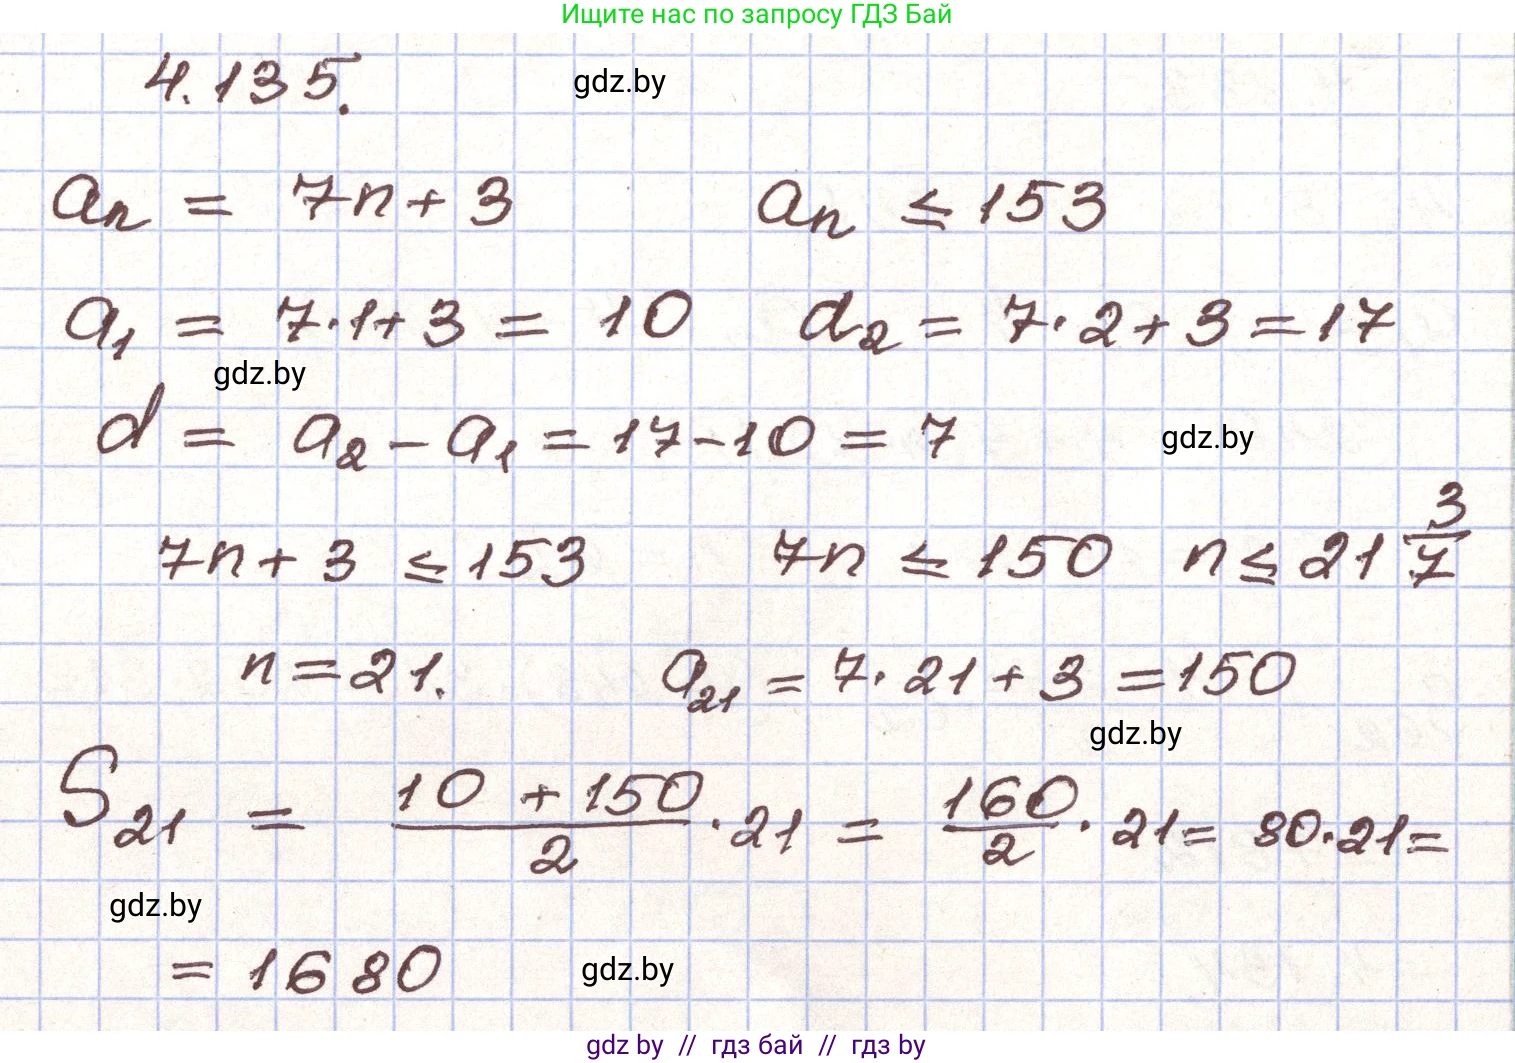 Ищите нас по запросу ГДЗ Бай
4.135.
gdz.by
aₙ = 7n + 3 aₙ ≤ 153
a₁ = 7·1 + 3 = 10 a₂ = 7·2 + 3 = 17
gdz.by
d = a₂ - a₁ = 17 - 10 = 7
gdz.by
7n + 3 ≤ 153 7n ≤ 150 n ≤ 21 3/7
n = 21. a₂₁ = 7·21 + 3 = 150
gdz.by
S₂₁ = (10 + 150)/2 · 21 = 160/2 · 21 = 80·21 =
gdz.by
= 1680
gdz.by
gdz by // гдз бай // гдз by